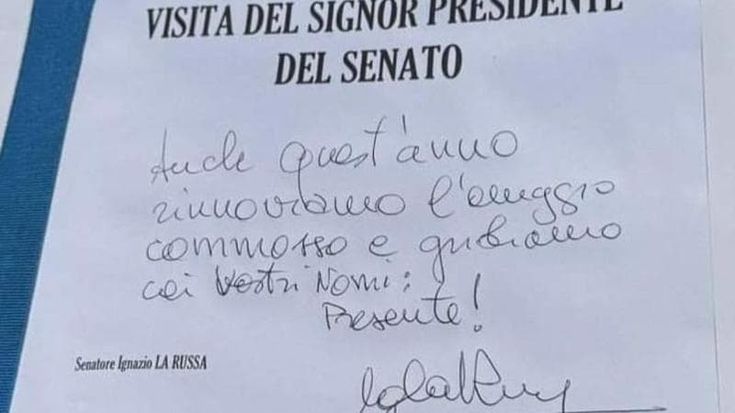 VISITA DEL SIGNOR PRESIDENTE
DEL SENATO
Anche quest'anno
rinnoviamo l'omaggio
commosso e gridiamo
coi Vostri Nomi:
Presente!
Senatore Ignazio LA RUSSA